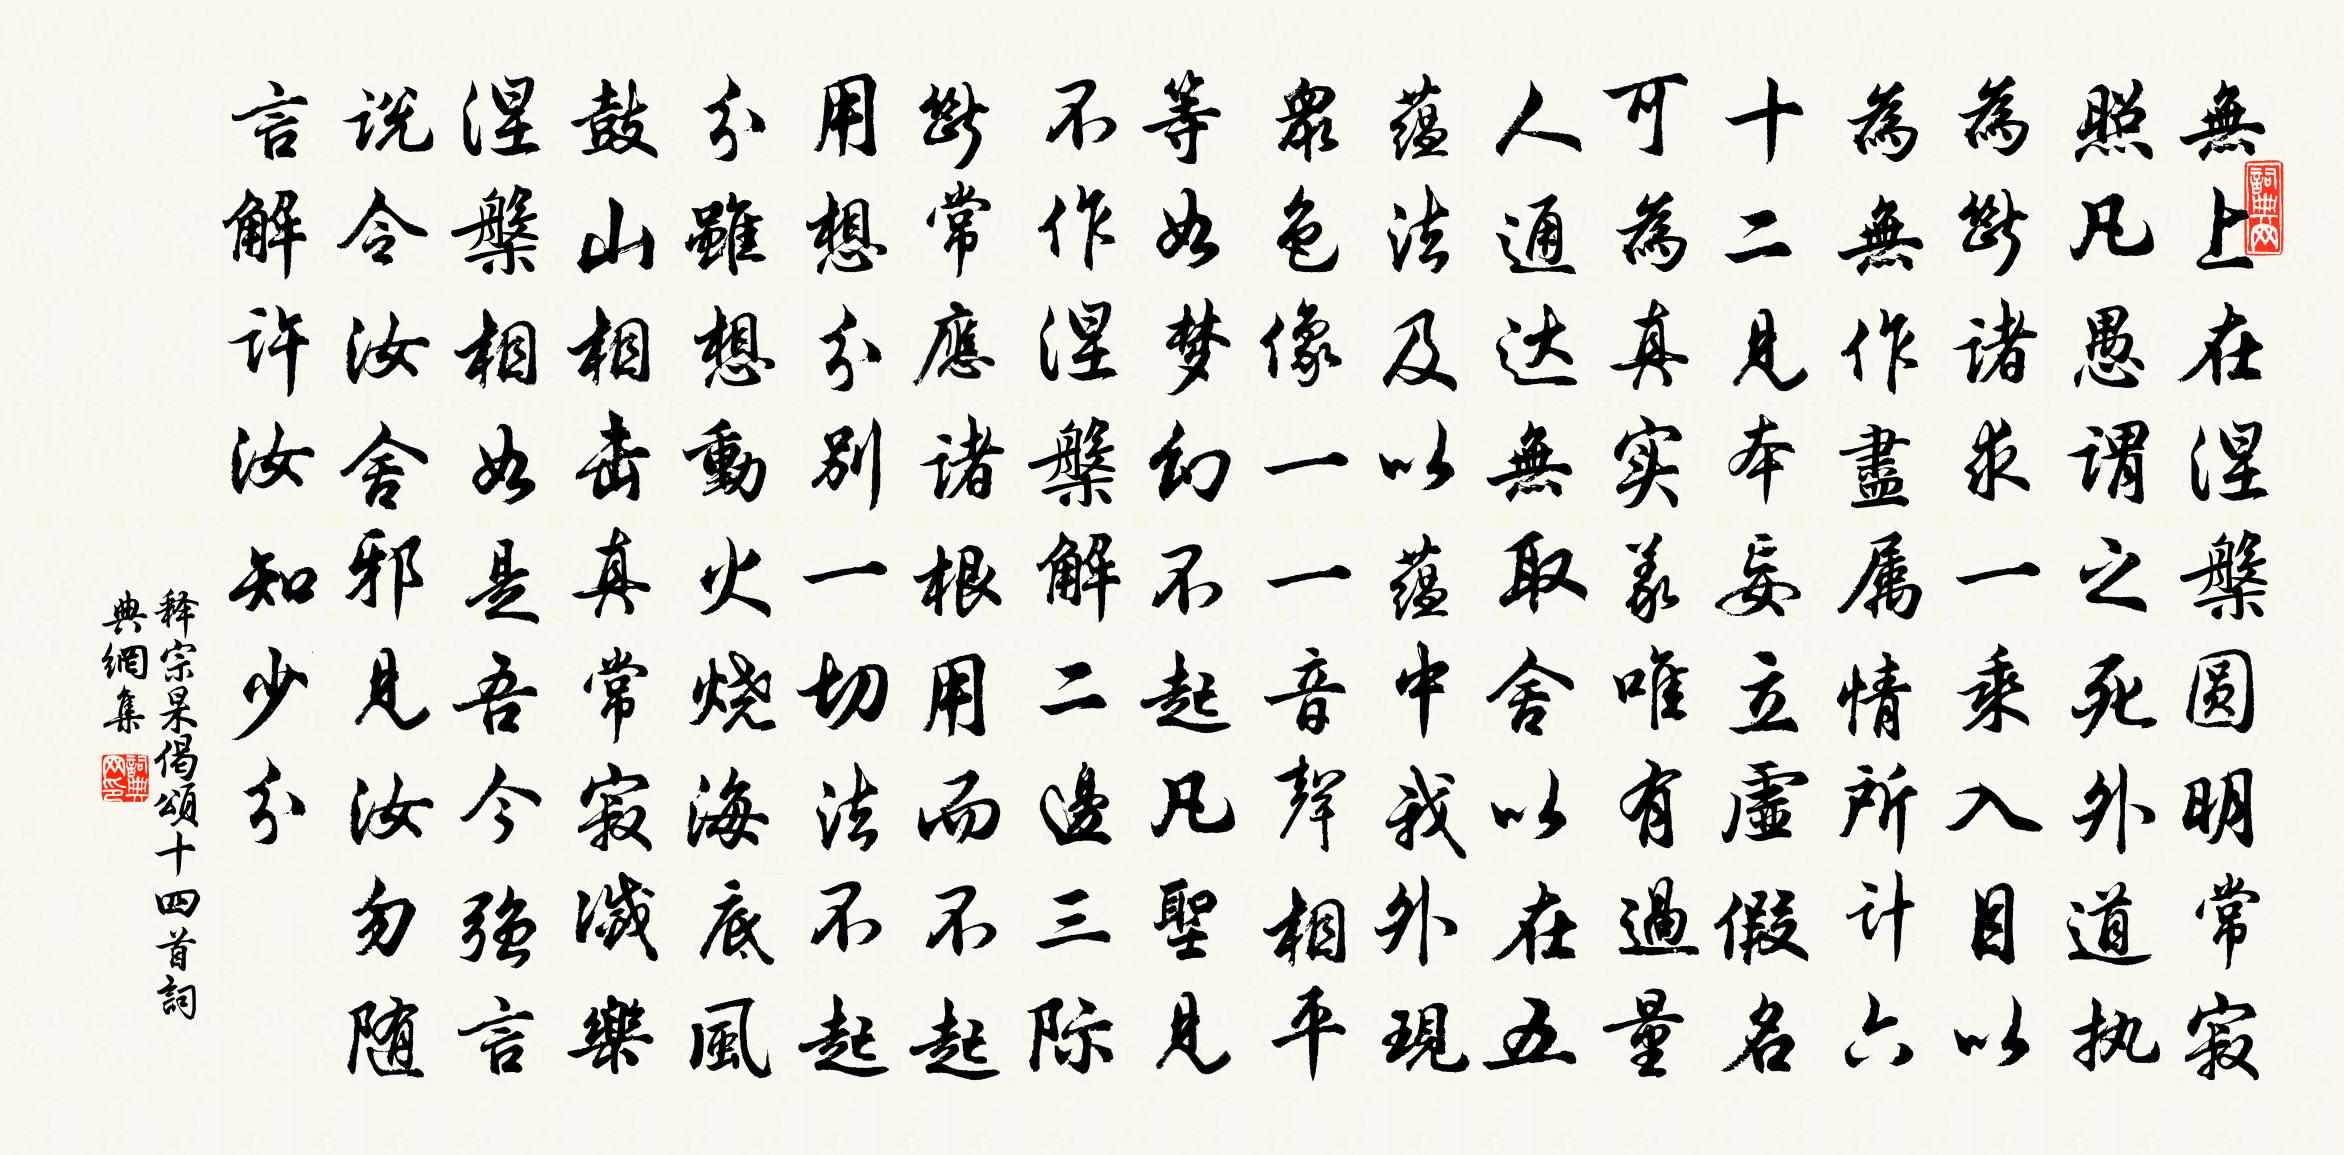 無上在涅槃圆明常寂
照凡愚谓之死外道执
為斷诸求一乘入目以
為無作盡属情所计六
十二见本妄立虚假名
可為真实義唯有過量
人通达無取舍以在五
蕴法及以蕴中我外現
眾色像一一音聲相平
等如梦幻不起凡聖见
不作涅槃解二邊三际
斷常應诸根用而不起
用想分别一切法不起
分雖想動火烧海底風
鼓山相击真常寂滅樂
涅槃相如是吾今强言
说令汝舍邪见汝勿随
言解许汝知少分
释宗杲偈頌十四首詞
典網集
詞典网
詞典网印